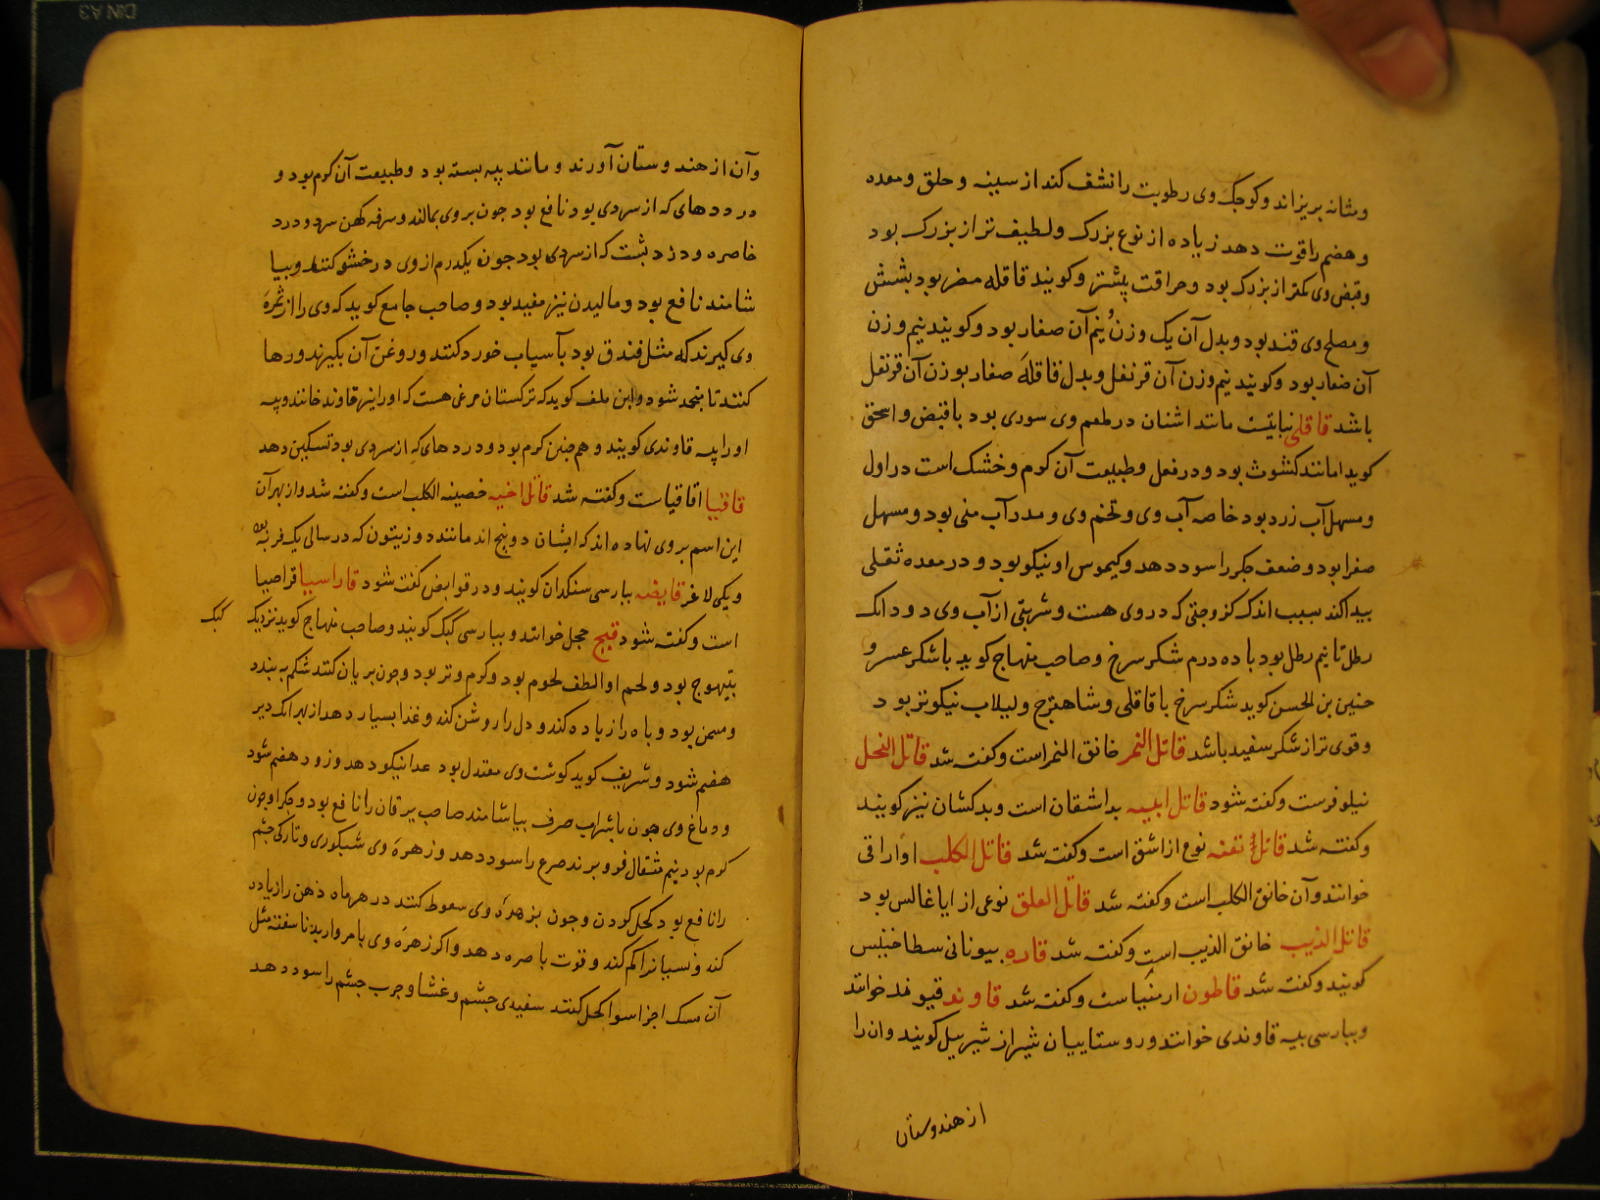 ومثانه بریزاند وکوچک وی رطوبت را نشف کند از سینه و حلق و معده
و هضم را قوت دهد زیاده از نوع بزرک ولطیف تر از بزرک بود
وقبض وی کمتر از بزرک بود وحراقت بیشتر وکویند قاقله مضر بود بشش
ومصلح وی قند بود وبدل آن یک وزن ونیم آن صغار بود وکویند نیم وزن
آن صغار بود وکویند نیم وزن آن قرنفل وبدل قاقلهٔ صغار بوزن آن قرنفل
باشد قاقلی نباتیست مانند اشنان در طعم وی شوری بود با قبض واسحق
کوید مانند کشوث بود ودر فعل وطبیعت آن کرم وخشک است در اول
ومسهل آب زرد بود خاصه آب وی وتخم وی ومدر آب منی بود ومسهل
صفرا بود وضعف جکر را سود دهد وکیموس او نیکو بود ودر معده ثقلی
پیدا کند سبب اندک لزوجتی که در وی هست وشربتی از آب وی دو دانک
رطل تا نیم رطل بود با ده درم شکر سرخ وصاحب منهاج کوید با شکر عسر و
حنین بن الحسن کوید شکر سرخ با قاقلی وشاهترج ولبلاب نیکوتر بود
وقوی تر از شکر سفید باشد قاتل النمر خانق النمر است وکفته شد قاتل النحل
نیلوفرست وکفته شود قاتل ابیه بداشقان است وبدکشان نیز کویند
وکفته شد قاتل نفسه نوع از اشق است وکفته شد قاتل الکلب اواراقی
خوانند وآن خانق الکلب است وکفته شد قاتل العلق نوعی از اناغالس بود
قاتل الذیب خانق الذیب است وکفته شد قاره بیونانی سطاخینس
کویند وکفته شد قاطون ارمنیاست وکفته شد قاوند قیوند خوانند
وبپارسی پیه قاوندی خوانند وروستاییان شیراز شیربیل کویند وان را
از هندوستان
وآن از هندوستان آورند ومانند پیه بسته بود وطبیعت آن کرم بود و
در دردهای که از سردی بود نافع بود چون بروی بمالند وسرفه کهن سرد ودرد
خاصره ودرد پشت که از سردی بود چون یکدرم از وی در خشو کنند وبیا
شامند نافع بود ومالیدن نیز مفید بود وصاحب جامع کوید که وی را از ثمرهٔ
وی کیرند که مثل فندق بود بآسیاب خورد کنند وروغن آن بکیرند ورها
کنند تا منجمد شود وابن ملف کوید که ترکستان مرغی هست که اورا نیز قاوند خوانند وپیه
اورا پیه قاوندی کویند وهم چنین کرم بود ودردهای که از سردی بود تسکین دهد
قاقیا اقاقیاست وکفته شد قاتل اخیه خصیة الکلب است وکفته شد واز بهر آن
این اسم بر وی نهاده اند که ایشان دو بیخ اند مانند دو زیتون که در سالی یک فربه بود
ویکی لاغر قایضه بپارسی سنکدان کویند ودر قوابض کفته شود قاراسیا قراصیا
است وکفته شود قبج حجل خوانند وبپارسی کبک کویند وصاحب منهاج کوید نزدیک
کبک
بتیهوج بود ولحم او الطف لحوم بود وکرم وتر بود وچون بریان کنند شکم به بندد
ومسمن بود وباه را زیاده کند ودل را روشن کند وغذا بسیار دهد از بهر آنک دیر
هضم شود وشریف کوید کوشت وی معتدل بود غذا نیکو دهد وزود هضم شود
ودماغ وی چون با شراب صرف بیاشامند صاحب یرقان را نافع بود وجکر او چون
کرم بود نیم مثقال فرو برند صرع را سود دهد وزهرهٔ وی شبکوری وتاریکی چشم
را نافع بود کحل کردن وچون بزهرهٔ وی سعوط کنند در هر ماه ذهن را زیاده
کند ونسیان را کم کند وقوت باصره دهد واکر زهرهٔ وی با مروارید ناسفته مثل
آن مسک اجزا سوا کحل کنند سفیدی چشم وغشا وجرب چشم را سود دهد